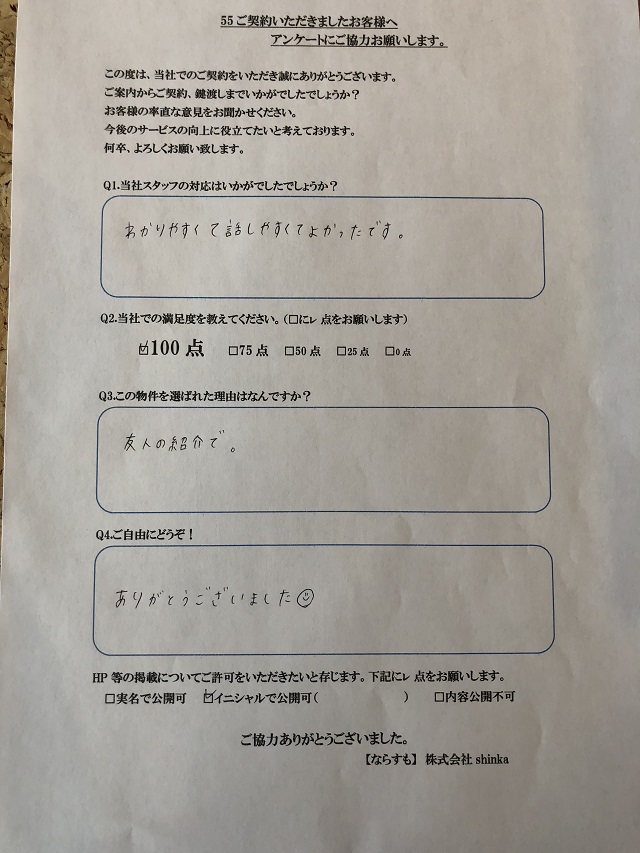 55ご契約いただきましたお客様へ
アンケートにご協力お願いします。
この度は、当社でのご契約をいただき誠にありがとうございます。
ご案内からご契約、鍵渡しまでいかがでしたでしょうか?
お客様の率直な意見をお聞かせください。
今後のサービスの向上に役立てたいと考えております。
何卒、よろしくお願い致します。
Q1.当社スタッフの対応はいかがでしたでしょうか?
わかりやすくて話しやすくてよかったです。
Q2.当社での満足度を教えてください。(□にレ点をお願いします)
☑100点 □75点 □50点 □25点 □0点
Q3.この物件を選ばれた理由はなんですか?
友人の紹介で。
Q4.ご自由にどうぞ!
ありがとうございました☺
HP等の掲載についてご許可をいただきたいと存じます。下記にレ点をお願いします。
□実名で公開可 ☑イニシャルで公開可( ) □内容公開不可
ご協力ありがとうございました。
【ならすも】 株式会社shinka